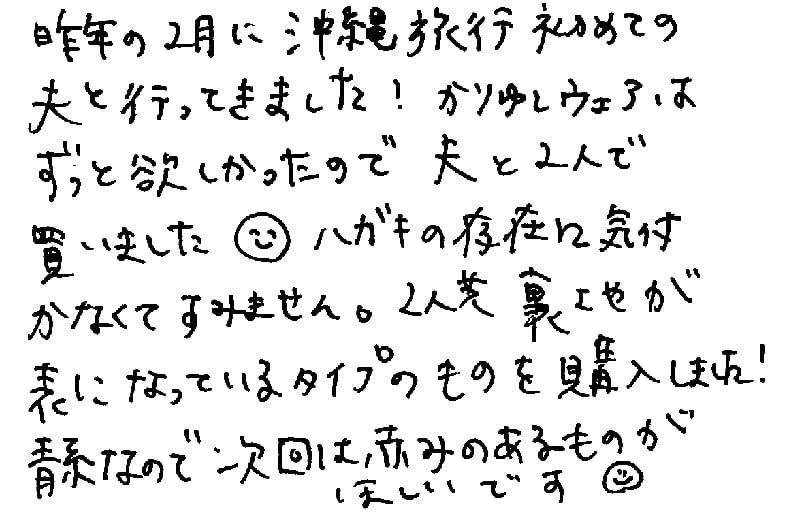 昨年の2月に沖縄旅行初めての
夫と行ってきました！かりゆしウェアは
ずっと欲しかったので 夫と2人で
買いました ☺ ハガキの存在に気付
かなくてすみません。2人共 裏地が
表になっているタイプのものを購入しました！
青系なので次回は、赤みのあるものが
ほしいです ☺